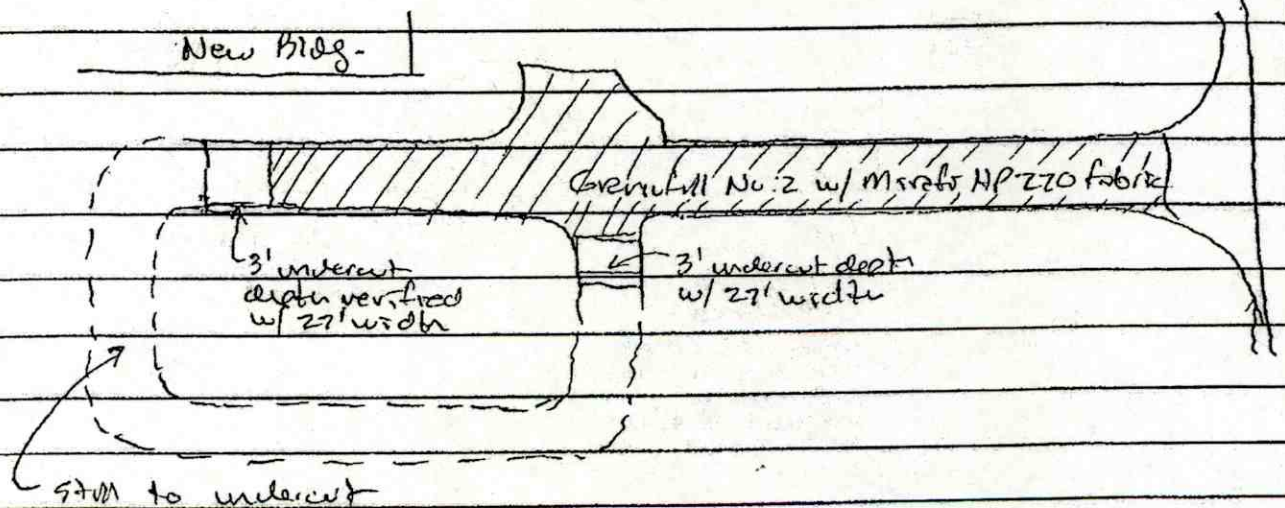 New Bldg.
Granufill No. 2 w/ Mirafi HP 270 fabric
3' undercut
depth verified
w/ 27' width
3' undercut depth
w/ 27' width
Still to undercut